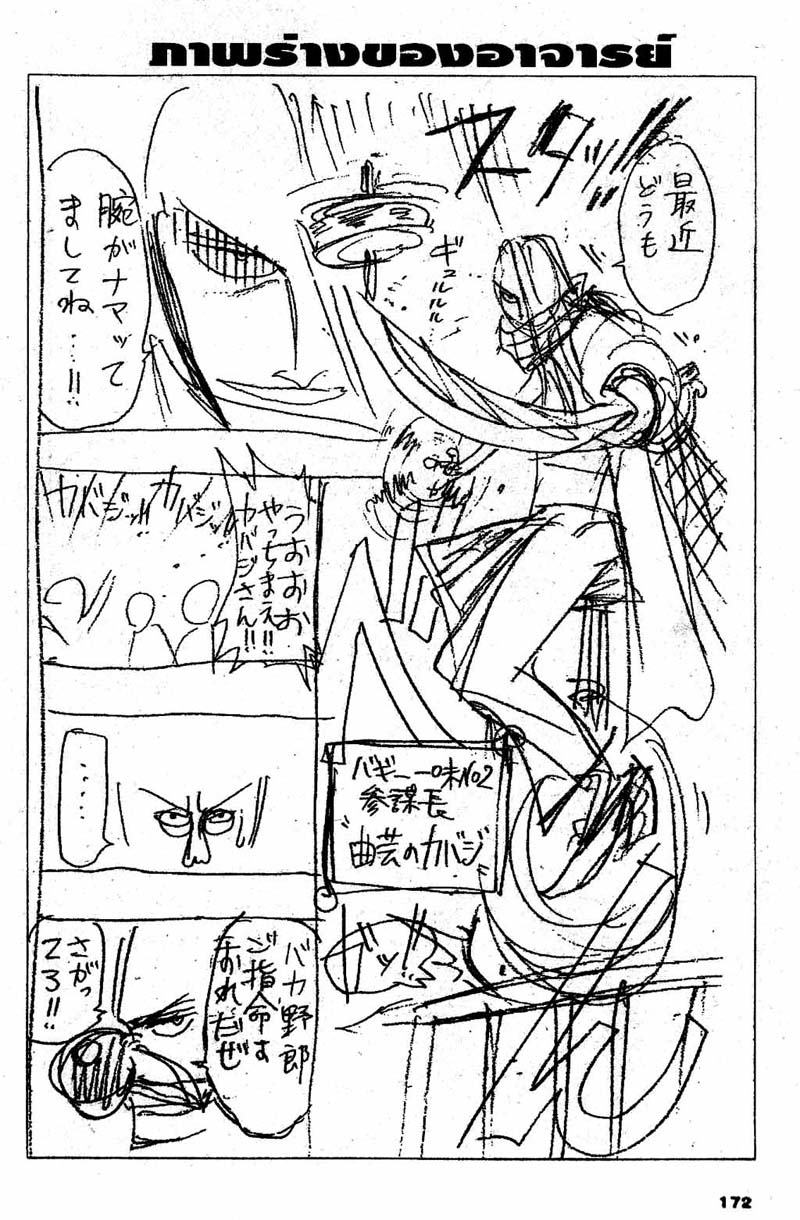 ภาพร่างของอาจารย์
スタッ!!
最近
どうも
ギュルルル
腕がナマッて
ましてね…!!
うおおお
やっちまえ!!
カバジさん!!
カバジッ!!
カバジッ!!
……
バギー一味No2
参謀長
"曲芸のカバジ"
バカ野郎
ご指命は
おれだぜ
さがっ
てろ!!
172